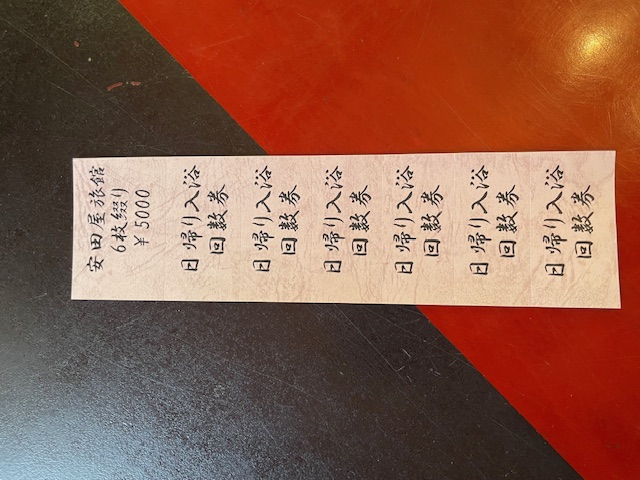 安田屋旅館
6枚綴り
￥5000
日帰り入浴
回数券
日帰り入浴
回数券
日帰り入浴
回数券
日帰り入浴
回数券
日帰り入浴
回数券
日帰り入浴
回数券